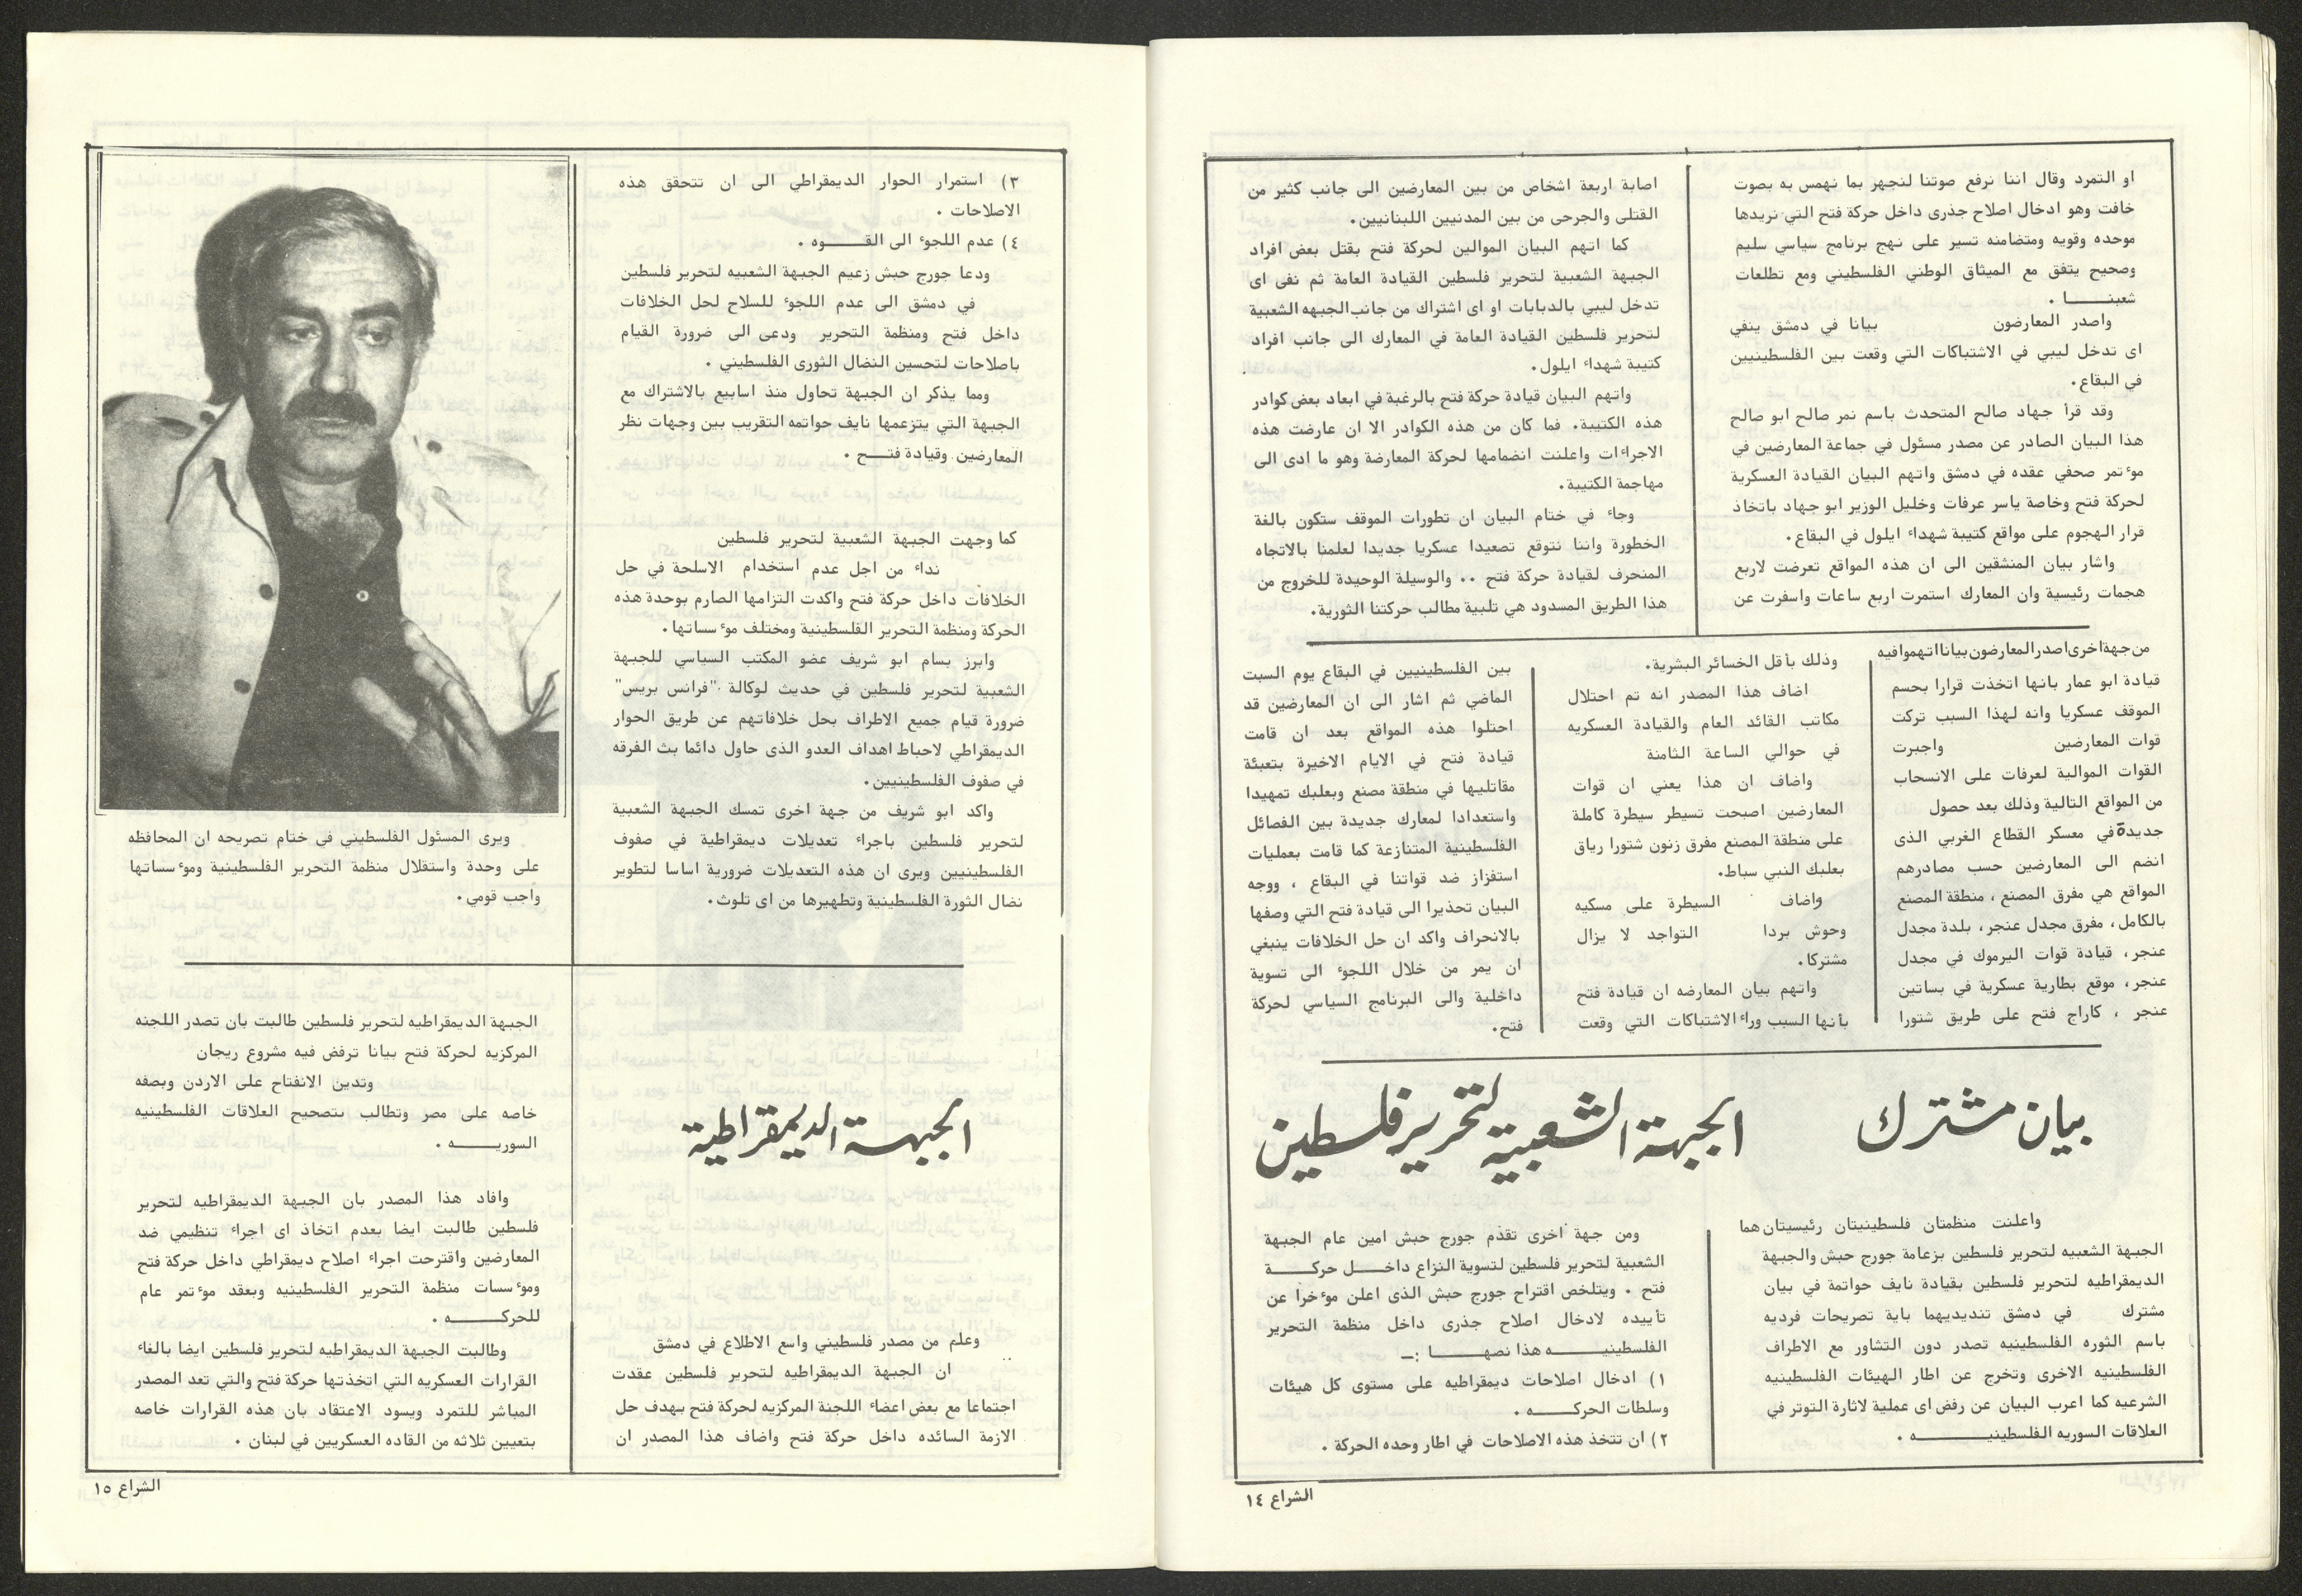 او التمرد وقال اننا نرفع صوتنا لنجهر بما نهمس به بصوت
خافت وهو ادخال اصلاح جذرى داخل حركة فتح التي نريدها
موحده وقويه ومتضامنه تسير على نهج برنامج سياسي سليم
وصحيح يتفق مع الميثاق الوطني الفلسطيني ومع تطلعات
شعبنـــــا .
واصدر المعارضون بيانا في دمشق ينفي
اى تدخل ليبي في الاشتباكات التي وقعت بين الفلسطينيين
في البقاع.
وقد قرأ جهاد صالح المتحدث باسم نمر صالح ابو صالح
هذا البيان الصادر عن مصدر مسئول في جماعة المعارضين في
موٴتمر صحفي عقده في دمشق واتهم البيان القيادة العسكرية
لحركة فتح وخاصة ياسر عرفات وخليل الوزير ابو جهاد باتخاذ
قرار الهجوم على مواقع كتيبة شهداء ايلول في البقاع.
واشار بيان المنشقين الى ان هذه المواقع تعرضت لاربع
هجمات رئيسية وان المعارك استمرت اربع ساعات واسفرت عن
اصابة اربعة اشخاص من بين المعارضين الى جانب كثير من
القتلى والجرحى من بين المدنيين اللبنانيين.
كما اتهم البيان الموالين لحركة فتح بقتل بعض افراد
الجبهة الشعبية لتحرير فلسطين القيادة العامة ثم نفى اى
تدخل ليبي بالدبابات او اى اشتراك من جانب الجبهه الشعبية
لتحرير فلسطين القيادة العامة في المعارك الى جانب افراد
كتيبة شهداء ايلول.
واتهم البيان قيادة حركة فتح بالرغبة في ابعاد بعض كوادر
هذه الكتيبة. فما كان من هذه الكوادر الا ان عارضت هذه
الاجراءات واعلنت انضمامها لحركة المعارضة وهو ما ادى الى
مهاجمة الكتيبة.
وجاء في ختام البيان ان تطورات الموقف ستكون بالغة
الخطورة واننا نتوقع تصعيدا عسكريا جديدا لعلمنا بالاتجاه
المنحرف لقيادة حركة فتح .. والوسيلة الوحيدة للخروج من
هذا الطريق المسدود هي تلبية مطالب حركتنا الثورية.
من جهة اخرى اصدر المعارضون بيانا اتهموا فيه
قيادة ابو عمار بانها اتخذت قرارا بحسم
الموقف عسكريا وانه لهذا السبب تركت
قوات المعارضين واجبرت
القوات الموالية لعرفات على الانسحاب
من المواقع التالية وذلك بعد حصول
جديدة في معسكر القطاع الغربي الذى
انضم الى المعارضين حسب مصادرهم
المواقع هي مفرق المصنع ، منطقة المصنع
بالكامل، مفرق مجدل عنجر، بلدة مجدل
عنجر، قيادة قوات اليرموك في مجدل
عنجر، موقع بطارية عسكرية في بساتين
عنجر ، كاراج فتح على طريق شتورا
وذلك بأقل الخسائر البشرية.
اضاف هذا المصدر انه تم احتلال
مكاتب القائد العام والقيادة العسكريه
في حوالي الساعة الثامنة
واضاف ان هذا يعني ان قوات
المعارضين اصبحت تسيطر سيطرة كاملة
على منطقة المصنع مفرق زنون شتورا رياق
بعلبك النبي سباط.
واضاف السيطرة على مسكيه
وحوش بردا التواجد لا يزال
مشتركا.
واتهم بيان المعارضه ان قيادة فتح
بأنها السبب وراء الاشتباكات التي وقعت
بين الفلسطينيين في البقاع يوم السبت
الماضي ثم اشار الى ان المعارضين قد
احتلوا هذه المواقع بعد ان قامت
قيادة فتح في الايام الاخيرة بتعبئة
مقاتليها في منطقة مصنع وبعلبك تمهيدا
واستعدادا لمعارك جديدة بين الفصائل
الفلسطينية المتنازعة كما قامت بعمليات
استفزاز ضد قواتنا في البقاع ، ووجه
البيان تحذيرا الى قيادة فتح التي وصفها
بالانحراف واكد ان حل الخلافات ينبغي
ان يمر من خلال اللجوء الى تسوية
داخلية والى البرنامج السياسي لحركة
فتح.
بيان مشترك
الجبهة الشعبية لتحرير فلسطين
واعلنت منظمتان فلسطينيتان رئيسيتان هما
الجبهة الشعبيه لتحرير فلسطين بزعامة جورج حبش والجبهة
الديمقراطيه لتحرير فلسطين بقيادة نايف حواتمة في بيان
مشترك في دمشق تنديديهما باية تصريحات فرديه
باسم الثوره الفلسطينيه تصدر دون التشاور مع الاطراف
الفلسطينيه الاخرى وتخرج عن اطار الهيئات الفلسطينيه
الشرعيه كما اعرب البيان عن رفض اى عملية لاثارة التوتر في
العلاقات السوريه الفلسطينيـــــــــه .
ومن جهة اخرى تقدم جورج حبش امين عام الجبهة
الشعبية لتحرير فلسطين لتسوية النزاع داخـــل حركــــة
فتح . ويتلخص اقتراح جورج حبش الذى اعلن موٴخرا عن
تأييده لادخال اصلاح جذرى داخل منظمة التحرير
الفلسطينيــــــه هذا نصهــــــا :ـ
١) ادخال اصلاحات ديمقراطيه على مستوى كل هيئات
وسلطات الحركـــــه .
٢) ان تتخذ هذه الاصلاحات في اطار وحده الحركة .
الشراع ١٤
٣) استمرار الحوار الديمقراطي الى ان تتحقق هذه
الاصلاحات .
٤) عدم اللجوء الى القـــــوه .
ودعا جورج حبش زعيم الجبهة الشعبيه لتحرير فلسطين
في دمشق الى عدم اللجوء للسلاح لحل الخلافات
داخل فتح ومنظمة التحرير ودعى الى ضرورة القيام
باصلاحات لتحسين النضال الثورى الفلسطيني .
ومما يذكر ان الجبهة تحاول منذ اسابيع بالاشتراك مع
الجبهة التي يتزعمها نايف حواتمه التقريب بين وجهات نظر
المعارضين وقيادة فتـــح .
كما وجهت الجبهة الشعبية لتحرير فلسطين
نداء من اجل عدم استخدام الاسلحة في حل
الخلافات داخل حركة فتح واكدت التزامها الصارم بوحدة هذه
الحركة ومنظمة التحرير الفلسطينية ومختلف موٴسساتها.
وابرز بسام ابو شريف عضو المكتب السياسي للجبهة
الشعبية لتحرير فلسطين في حديث لوكالة "فرانس بريس"
ضرورة قيام جميع الاطراف بحل خلافاتهم عن طريق الحوار
الديمقراطي لاحباط اهداف العدو الذى حاول دائما بث الفرقه
في صفوف الفلسطينيين.
واكد ابو شريف من جهة اخرى تمسك الجبهة الشعبية
لتحرير فلسطين باجراء تعديلات ديمقراطية في صفوف
الفلسطينيين ويرى ان هذه التعديلات ضرورية اساسا لتطوير
نضال الثورة الفلسطينية وتطهيرها من اى تلوث.
ويرى المسئول الفلسطيني في ختام تصريحه ان المحافظه
على وحدة واستقلال منظمة التحرير الفلسطينية وموٴسساتها
واجب قومي.
الجبهة الديمقراطية
وعلم من مصدر فلسطيني واسع الاطلاع في دمشق
ان الجبهة الديمقراطيه لتحرير فلسطين عقدت
اجتماعا مع بعض اعضاء اللجنة المركزيه لحركة فتح بهدف حل
الازمة السائده داخل حركة فتح واضاف هذا المصدر ان
الجبهة الديمقراطيه لتحرير فلسطين طالبت بان تصدر اللجنه
المركزيه لحركة فتح بيانا ترفض فيه مشروع ريجان
وتدين الانفتاح على الاردن وبصفه
خاصه على مصر وتطالب بتصحيح العلاقات الفلسطينيه
السوريـــــه .
وافاد هذا المصدر بان الجبهة الديمقراطيه لتحرير
فلسطين طالبت ايضا بعدم اتخاذ اى اجراء تنظيمي ضد
المعارضين واقترحت اجراء اصلاح ديمقراطي داخل حركة فتح
وموٴسسات منظمة التحرير الفلسطينيه وبعقد موٴتمر عام
للحركــــــه .
وطالبت الجبهة الديمقراطيه لتحرير فلسطين ايضا بالغاء
القرارات العسكريه التي اتخذتها حركة فتح والتي تعد المصدر
المباشر للتمرد ويسود الاعتقاد بان هذه القرارات خاصه
بتعيين ثلاثه من القاده العسكريين في لبنان .
الشراع ١٥